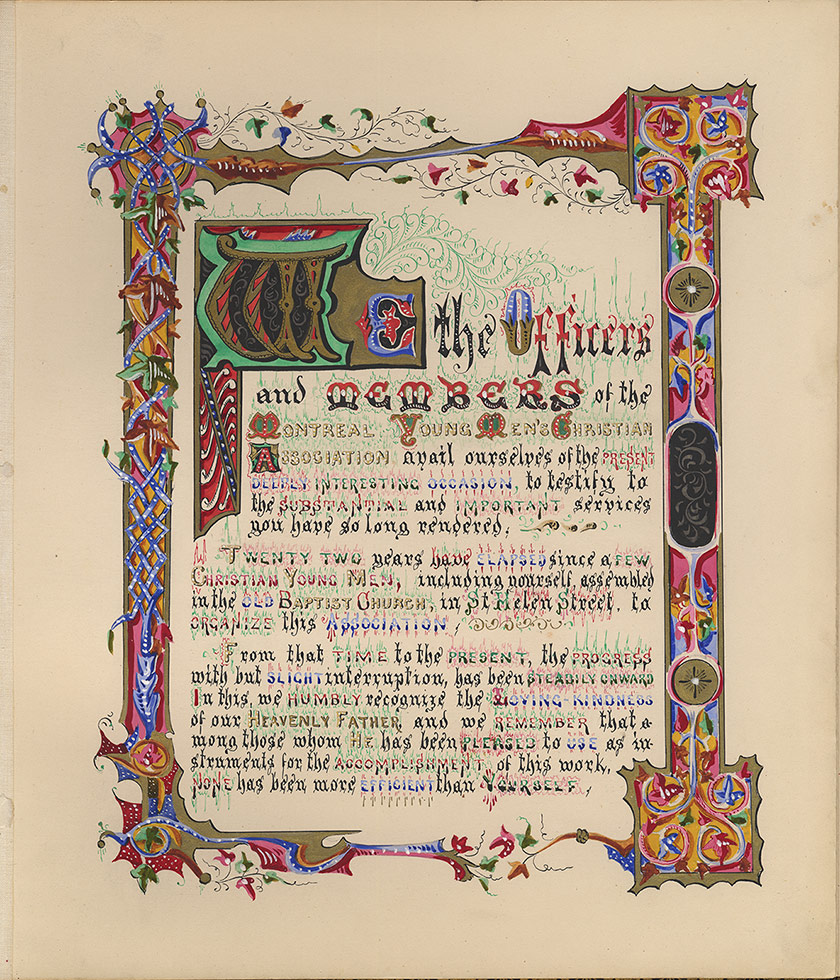 We the Officers
and MEMBERS of the
MONTREAL YOUNG MEN'S CHRISTIAN
ASSOCIATION avail ourselves of the PRESENT
DEEPLY INTERESTING OCCASION, to testify to
the SUBSTANTIAL and IMPORTANT services
you have so long rendered.
TWENTY TWO years have ELAPSED since a FEW
CHRISTIAN YOUNG MEN, including yourself, assembled
in the OLD BAPTIST CHURCH, in St Helen Street, to
ORGANIZE this ASSOCIATION,
From that TIME to the PRESENT, the PROGRESS
with but SLIGHT interruption, has been STEADILY ONWARD
In this, we HUMBLY recognize the LOVING-KINDNESS
of our HEAVENLY FATHER, and we REMEMBER that a-
mong those whom HE has been PLEASED to USE as in-
struments for the ACCOMPLISHMENT, of this work,
NONE has been more EFFICIENT than YOURSELF,